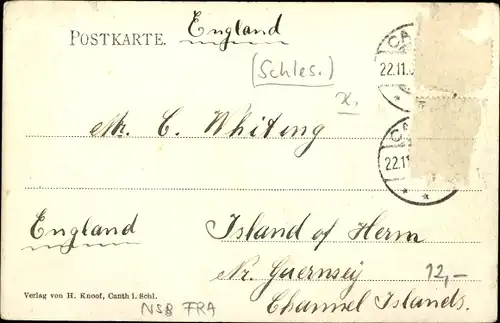 England
POSTKARTE.
(Schles.)
CA
22.11.
x.
Mr. C. Whiting
CA
22.11
England
Island of Herm
Nr. Guernsey
12,-
Channel Islands.
Verlag von H. Knoof, Canth i. Schl.
NSB FRA